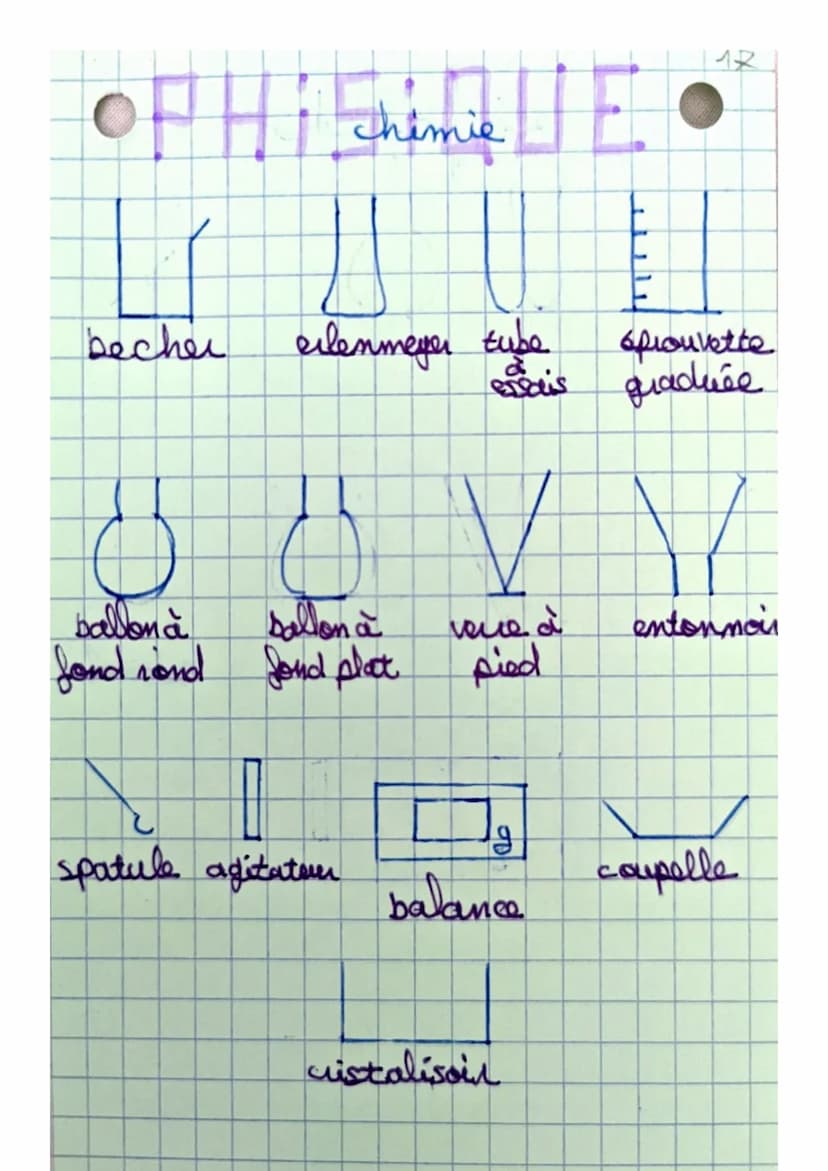 17
PHiSiQUE
chimie
becher erlenmeyer tube éprouvette
à
essais graduée
ballon à ballon à verre à entonnoir
fond rond fond plat pied
g
spatule agitateur coupelle
balance
cristalisoir